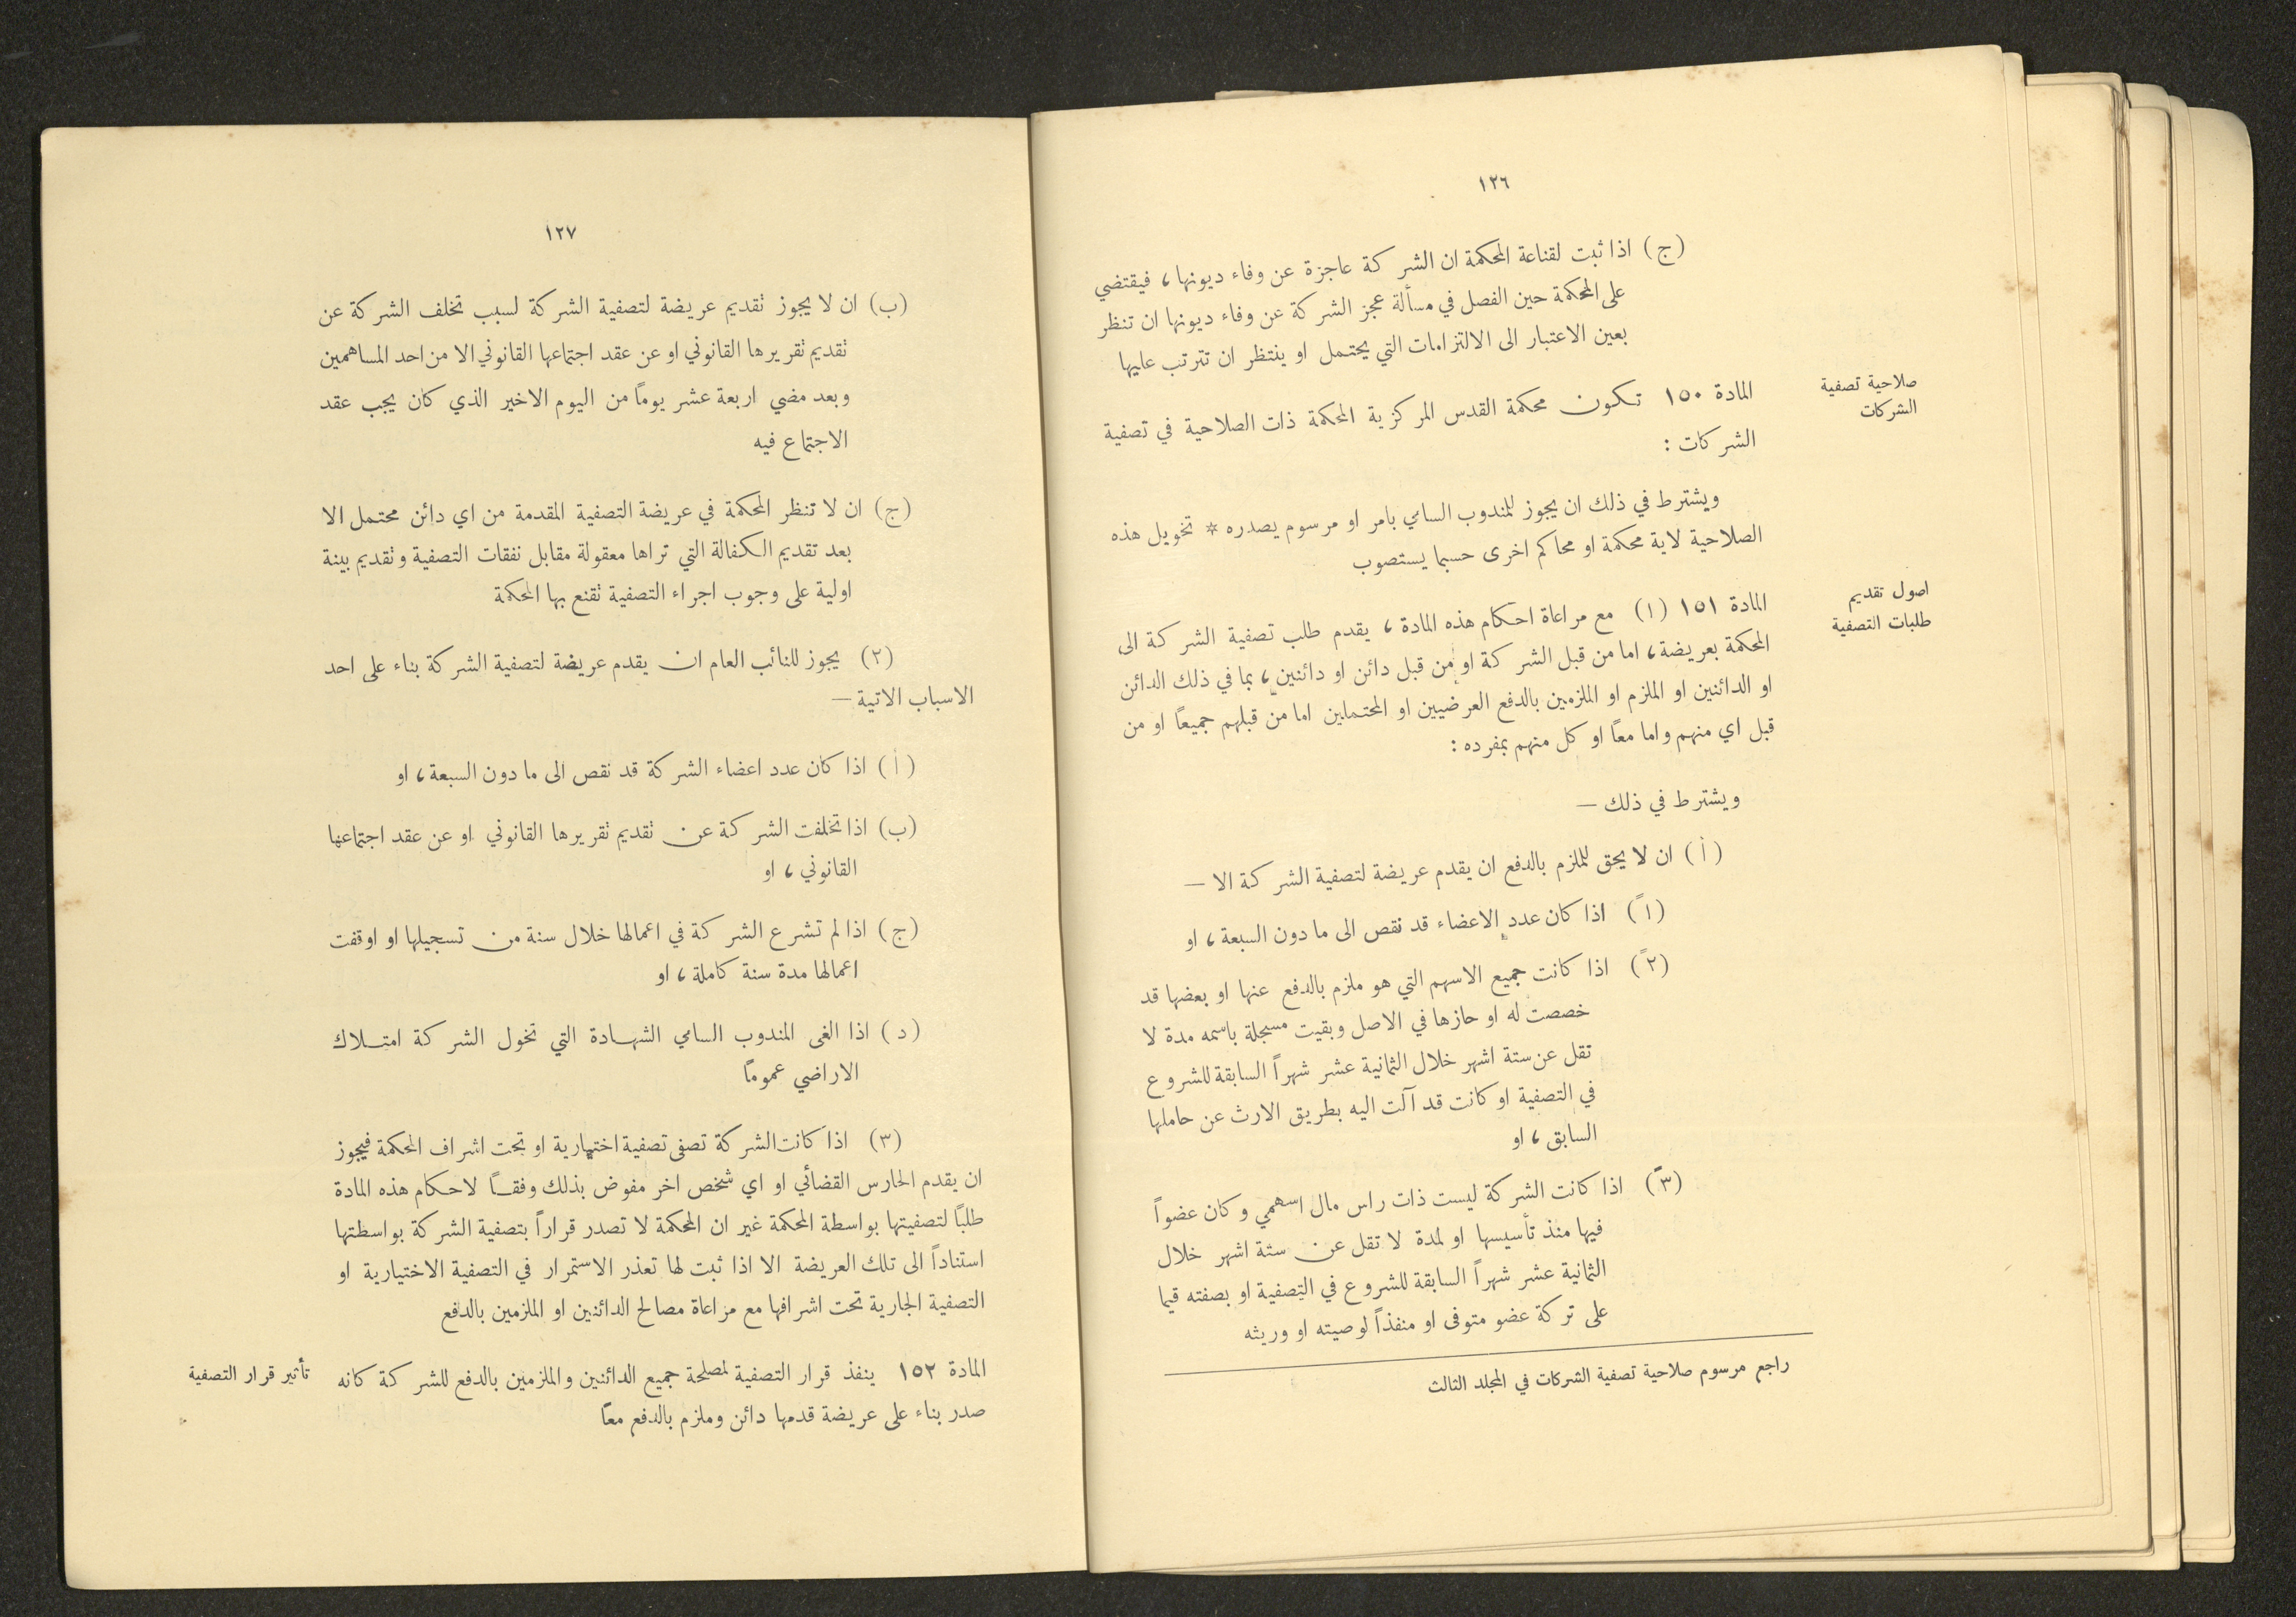 ١٢٦
(ج) اذا ثبت لقناعة المحكمة ان الشركة عاجزة عن وفاء ديونها، فيقتضي
على المحكمة حين الفصل في مسألة عجز الشركة عن وفاء ديونها ان تنظر
بعين الاعتبار الى الالتزامات التي يحتمل او ينتظر ان تترتب عليها
صلاحية تصفية
الشركات
المادة ١٥٠ تكون محكمة القدس المركزية المحكمة ذات الصلاحية في تصفية
الشركات :
ويشترط في ذلك ان يجوز للمندوب السامي بامر او مرسوم يصدره * تخويل هذه
الصلاحية لاية محكمة او محاكم اخرى حسبما يستصوب
اصول تقديم
طلبات التصفية
المادة ١٥١ (١) مع مراعاة احكام هذه المادة، يقدم طلب تصفية الشركة الى
المحكمة بعريضة، اما من قبل الشركة او من قبل دائن او دائنين، بما في ذلك الدائن
او الدائنين او الملزم او الملزمين بالدفع العرضيين او المحتملين اما من قبلهم جميعاً او من
قبل اي منهم واما معاً او كل منهم بمفرده :
ويشترط في ذلك —
(أ) ان لا يحق للملزم بالدفع ان يقدم عريضة لتصفية الشركة الا —
(١ً) اذا كان عدد الاعضاء قد نقص الى ما دون السبعة، او
(٢ً) اذا كانت جميع الاسهم التي هو ملزم بالدفع عنها او بعضها قد
خصصت له او حازها في الاصل وبقيت مسجلة باسمه مدة لا
تقل عن ستة اشهر خلال الثمانية عشر شهراً السابقة للشروع
في التصفية او كانت قد آلت اليه بطريق الارث عن حاملها
السابق، او
(٣ً) اذا كانت الشركة ليست ذات راس مال اسهمي وكان عضواً
فيها منذ تأسيسها او لمدة لا تقل عن ستة اشهر خلال
الثمانية عشر شهراً السابقة للشروع في التصفية او بصفته قيما
على تركة عضو متوفى او منفذاً لوصيته او وريثه
راجع مرسوم صلاحية تصفية الشركات في المجلد الثالث
١٢٧
(ب) ان لا يجوز تقديم عريضة لتصفية الشركة لسبب تخلف الشركة عن
تقديم تقريرها القانوني او عن عقد اجتماعها القانوني الا من احد المساهمين
وبعد مضي اربعة عشر يوماً من اليوم الاخير الذي كان يجب عقد
الاجتماع فيه
(ج) ان لا تنظر المحكمة في عريضة التصفية المقدمة من اي دائن محتمل الا
بعد تقديم الكفالة التي تراها معقولة مقابل نفقات التصفية وتقديم بينة
اولية على وجوب اجراء التصفية تقنع بها المحكمة
(٢) يجوز للنائب العام ان يقدم عريضة لتصفية الشركة بناء على احد
الاسباب الاتية —
(أ) اذا كان عدد اعضاء الشركة قد نقص الى ما دون السبعة، او
(ب) اذا تخلفت الشركة عن تقديم تقريرها القانوني او عن عقد اجتماعها
القانوني، او
(ج) اذا لم تشرع الشركة في اعمالها خلال سنة من تسجيلها او اوقفت
اعمالها مدة سنة كاملة، او
(د) اذا الغى المندوب السامي الشهادة التي تخول الشركة امتلاك
الاراضي عموماً
(٣) اذا كانت الشركة تصفى تصفية اختيارية او تحت اشراف المحكمة فيجوز
ان يقدم الحارس القضائي او اي شخص اخر مفوض بذلك وفقاً لاحكام هذه المادة
طلباً لتصفيتها بواسطة المحكمة غير ان المحكمة لا تصدر قراراً بتصفية الشركة بواسطتها
استناداً الى تلك العريضة الا اذا ثبت لها تعذر الاستمرار في التصفية الاختيارية او
التصفية الجارية تحت اشرافها مع مراعاة مصالح الدائنين او الملزمين بالدفع
المادة ١٥٢ ينفذ قرار التصفية لمصلحة جميع الدائنين والملزمين بالدفع للشركة كانه
تأثير قرار التصفية
صدر بناء على عريضة قدمها دائن وملزم بالدفع معاً